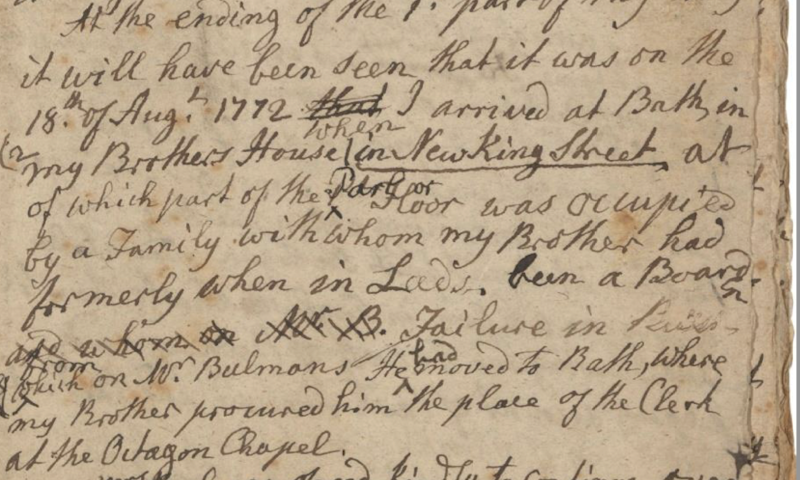 At the ending of the 1. part of my
it will have been seen that it was on the
18.th of Aug.t 1772 that I arrived at Bath, in
when
my Brothers House (in New King Street, at
of which part of the Parlor Floor was occupied
by a Family with whom my Brother had
formerly when in Leeds. been a Board-
and whom on Mr. B. Failure in
from
which on Mr. Bulmans He had moved to Bath, where
my Brother procured him the place of the Clerk
at the Octagon Chapel.